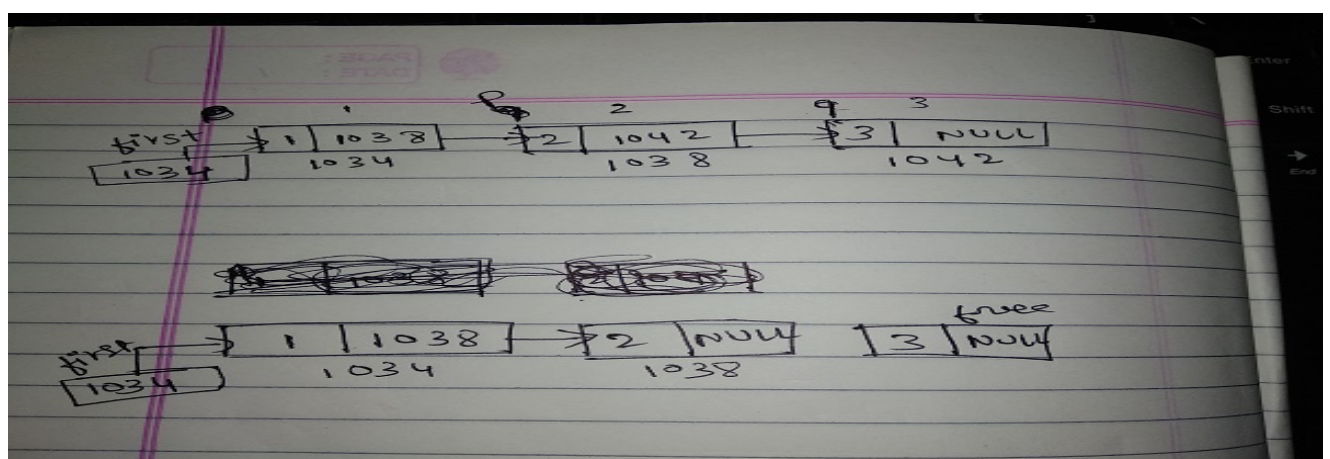 PAGE :
DATE :
1 p 2 q 3
first 1 1038 2 1042 3 NULL
1034 1034 1038 1042
free
first 1 1038 2 NULL 3 NULL
1034 1034 1038
nter
Shift
End